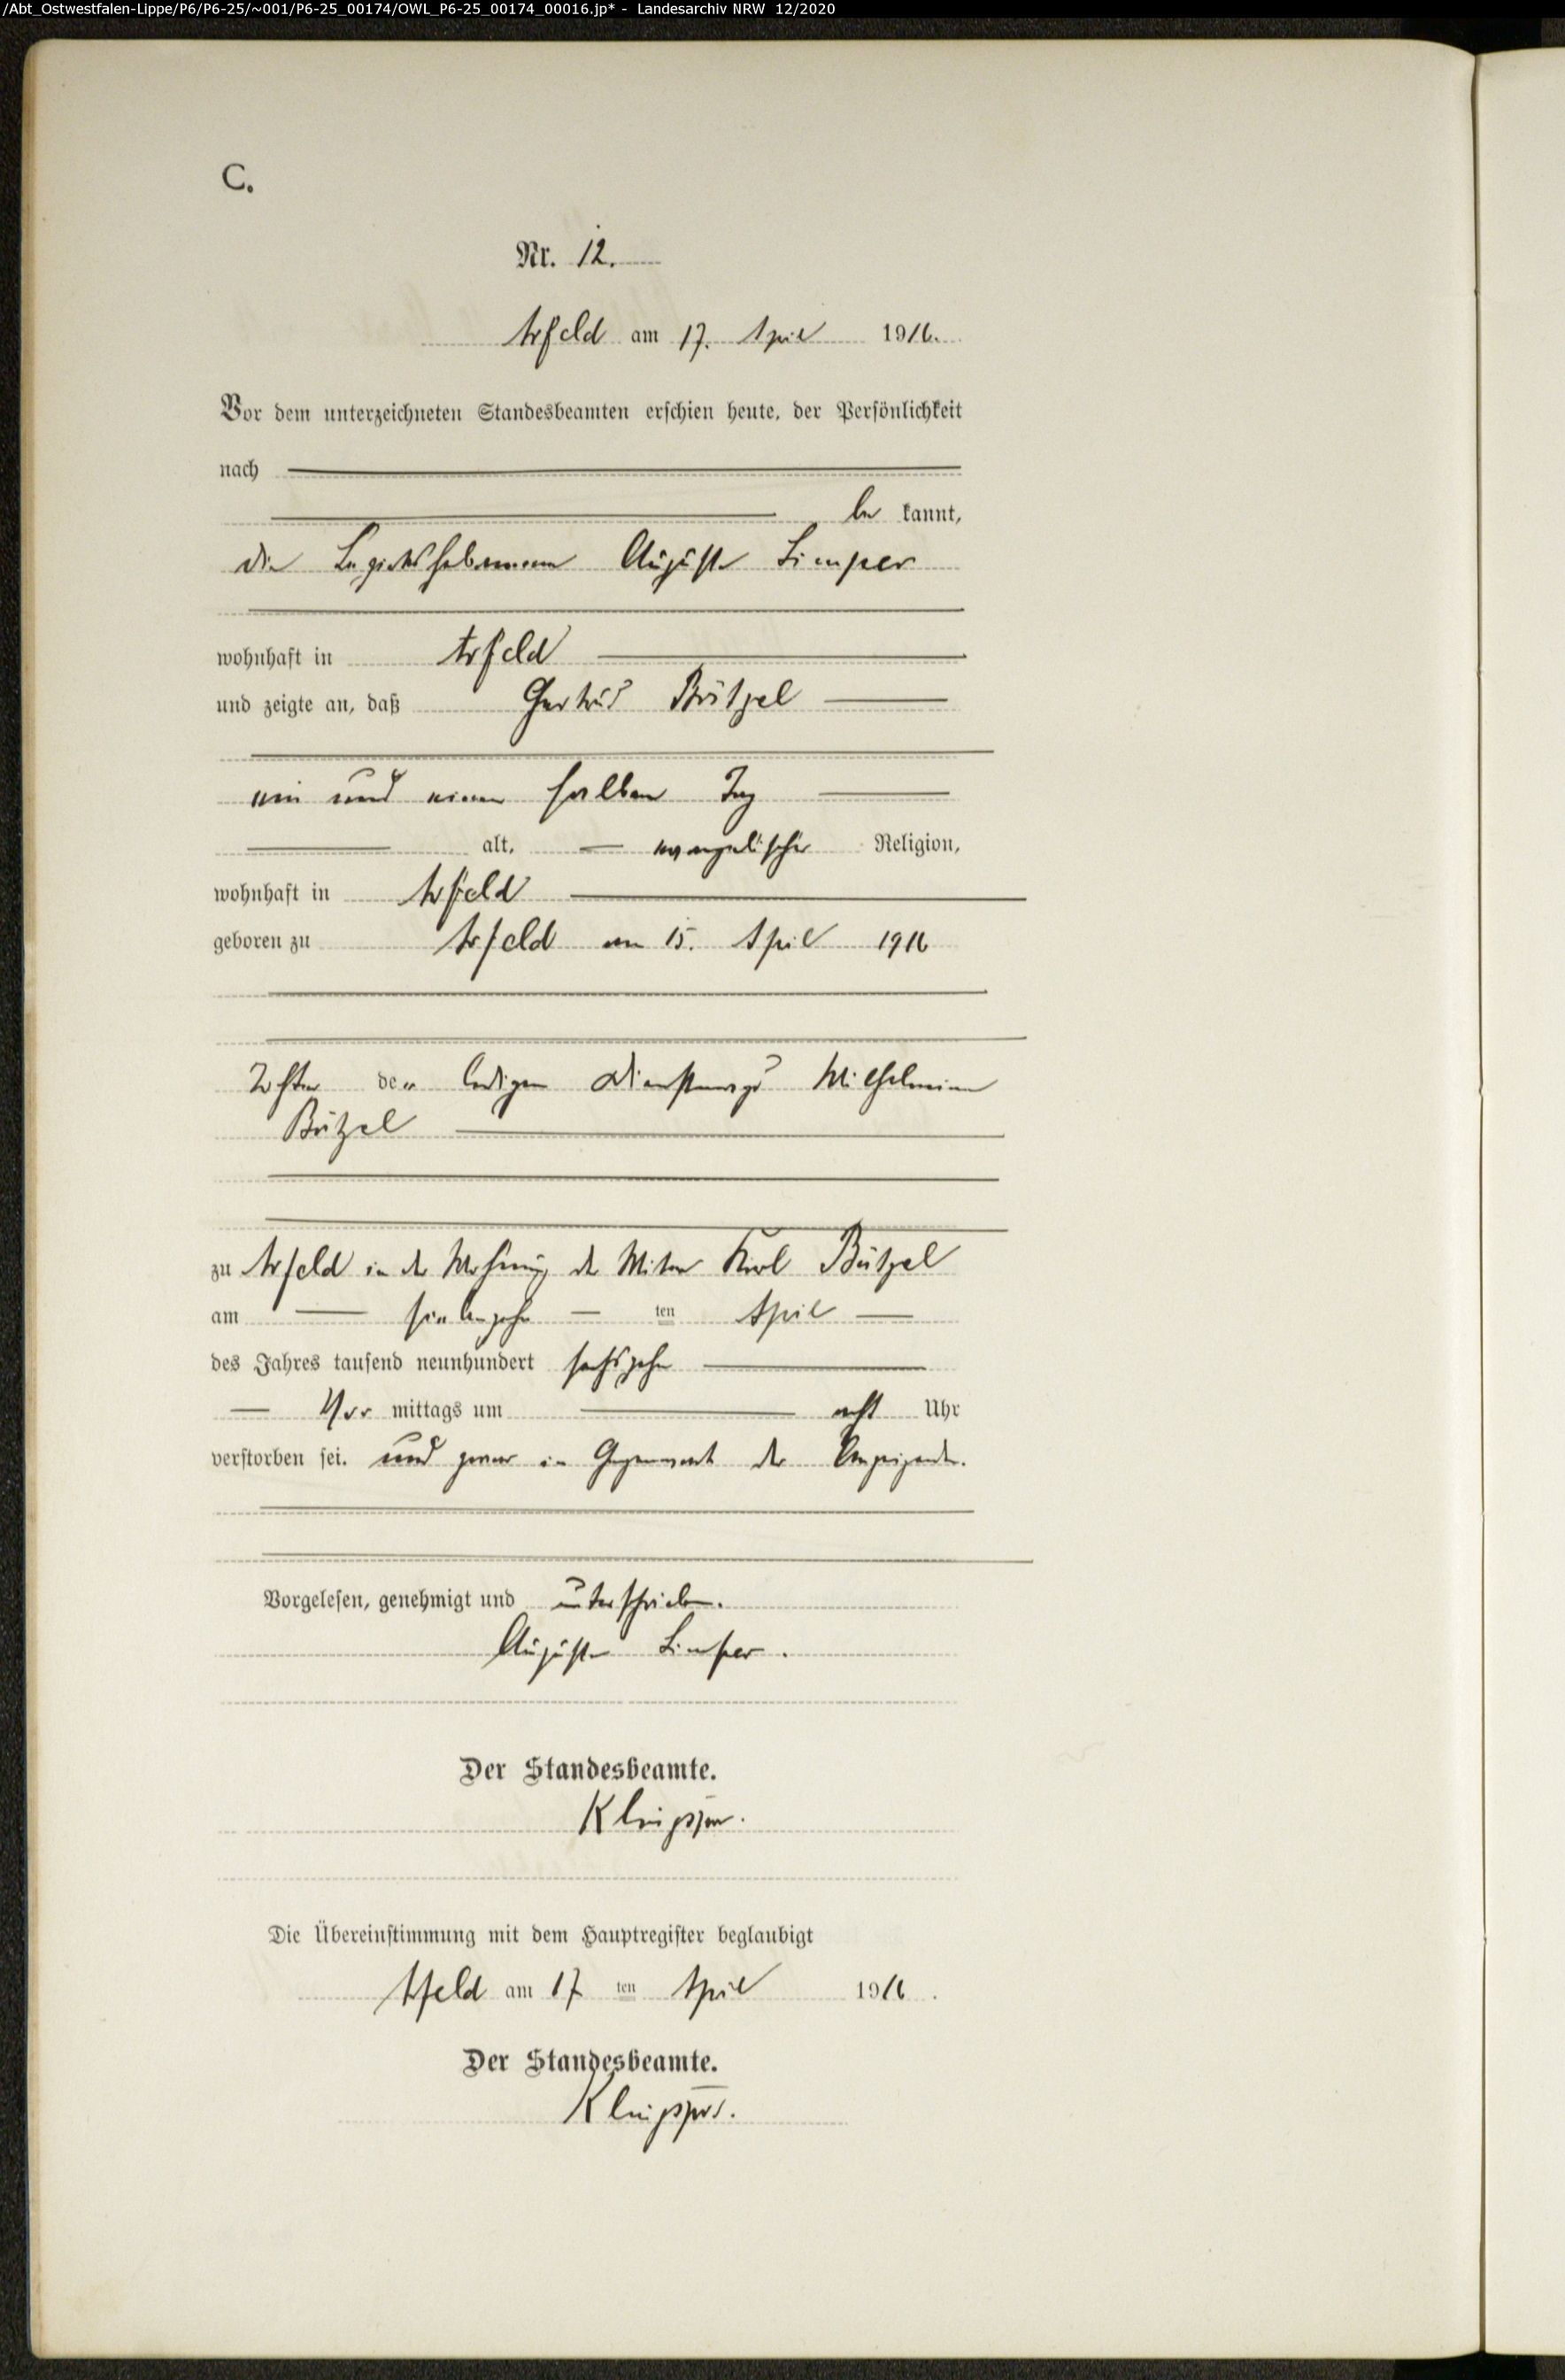 /Abt_Ostwestfalen-Lippe/P6/P6-25/~001/P6-25_00174/OWL_P6-25_00174_00016.jp* - Landesarchiv NRW 12/2020
C.
Nr. 12.
Arfeld am 17. April 1916.
Vor dem unterzeichneten Standesbeamten erschien heute, der Persönlichkeit
nach
be kannt,
die Bezirkshebamme Auguste Limper
wohnhaft in Arfeld
und zeigte an, daß Gertrud Bützel
ein und einen halben Tag
alt, evangelischer Religion,
wohnhaft in Arfeld
geboren zu Arfeld am 15. April 1916
Tochter der ledigen Dienstmagd Wilhelmine
Bützel
zu Arfeld in der Wohnung der Witwe Karl Bützel
am siebenzehn ten April
des Jahres tausend neunhundert sechszehn
Vor mittags um acht Uhr
verstorben sei. und zwar in Gegenwart der Anzeigenden.
Vorgelesen, genehmigt und unterschrieben.
Auguste Limper.
Der Standesbeamte.
Klingspor.
Die Übereinstimmung mit dem Hauptregister beglaubigt
Arfeld am 17 ten April 1916.
Der Standesbeamte.
Klingspor.